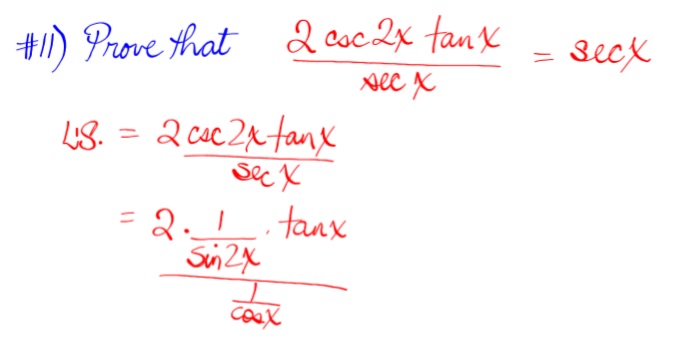 #11) Prove that 2 csc 2x tan x / sec x = sec x
L.S. = 2 csc 2x tan x / sec x
= 2 · 1/sin 2x · tan x / 1/cos x